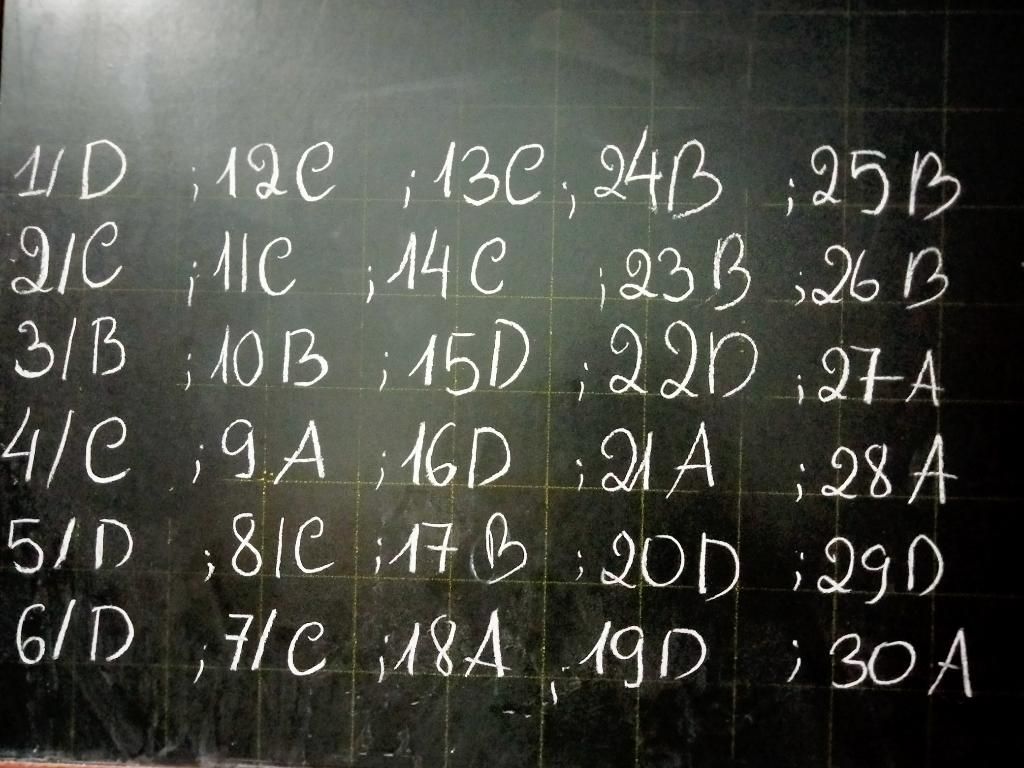 1/D ; 12C ; 13C ; 24B ; 25B
2/C ; 11C ; 14C ; 23B ; 26B
3/B ; 10B ; 15D ; 22D ; 27A
4/C ; 9A ; 16D ; 21A ; 28A
5/D ; 8/C ; 17B ; 20D ; 29D
6/D ; 7/C ; 18A ; 19D ; 30A